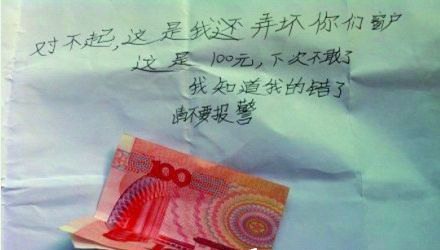 对不起,这是我还弄坏你们窗户
这是100元,下次不敢了
我知道我的错了
请不要报警
100